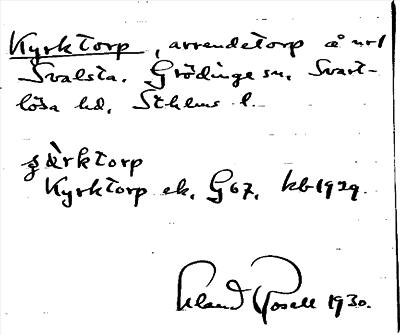 Kyrktorp, arrendetorp å nr 1
Svalsta. Grödinge sn, Svart-
lösa hd, Sthlms l.
Kyrktorp ek. G 67. kb 1929.
Erland Rosell 1930.